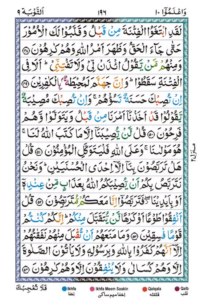 وَاعْلَمُوْۤا ۱۰
۱۹۶
اَلتَّوْبَة ۹
لَقَدِ ابْتَغَوُا الْفِتْنَةَ مِنْ قَبْلُ وَقَلَّبُوْا لَكَ الْاُمُوْرَ
حَتّٰى جَآءَ الْحَقُّ وَظَهَرَ اَمْرُ اللّٰهِ وَهُمْ كٰرِهُوْنَ
وَمِنْهُمْ مَّنْ يَّقُوْلُ ائْذَنْ لِّيْ وَلَا تَفْتِنِّيْ اَلَا فِي
الْفِتْنَةِ سَقَطُوْا وَاِنَّ جَهَنَّمَ لَمُحِيْطَةٌۢ بِالْكٰفِرِيْنَ
اِنْ تُصِبْكَ حَسَنَةٌ تَسُؤْهُمْ وَاِنْ تُصِبْكَ مُصِيْبَةٌ
يَّقُوْلُوْا قَدْ اَخَذْنَاۤ اَمْرَنَا مِنْ قَبْلُ وَيَتَوَلَّوْا وَّهُمْ
فَرِحُوْنَ قُلْ لَّنْ يُّصِيْبَنَاۤ اِلَّا مَا كَتَبَ اللّٰهُ لَنَا
هُوَ مَوْلٰىنَا وَعَلَى اللّٰهِ فَلْيَتَوَكَّلِ الْمُؤْمِنُوْنَ قُلْ
هَلْ تَرَبَّصُوْنَ بِنَاۤ اِلَّاۤ اِحْدَى الْحُسْنَيَيْنِ وَنَحْنُ
نَتَرَبَّصُ بِكُمْ اَنْ يُّصِيْبَكُمُ اللّٰهُ بِعَذَابٍ مِّنْ عِنْدِهٖۤ
اَوْ بِاَيْدِيْنَا فَتَرَبَّصُوْۤا اِنَّا مَعَكُمْ مُّتَرَبِّصُوْنَ قُلْ
اَنْفِقُوْا طَوْعًا اَوْ كَرْهًا لَّنْ يُّتَقَبَّلَ مِنْكُمْ اِنَّكُمْ كُنْتُمْ
قَوْمًا فٰسِقِيْنَ وَمَا مَنَعَهُمْ اَنْ تُقْبَلَ مِنْهُمْ نَفَقٰتُهُمْ
اِلَّاۤ اَنَّهُمْ كَفَرُوْا بِاللّٰهِ وَبِرَسُوْلِهٖ وَلَا يَاْتُوْنَ الصَّلٰوةَ
اِلَّا وَهُمْ كُسَالٰى وَلَا يُنْفِقُوْنَ اِلَّا وَهُمْ كٰرِهُوْنَ